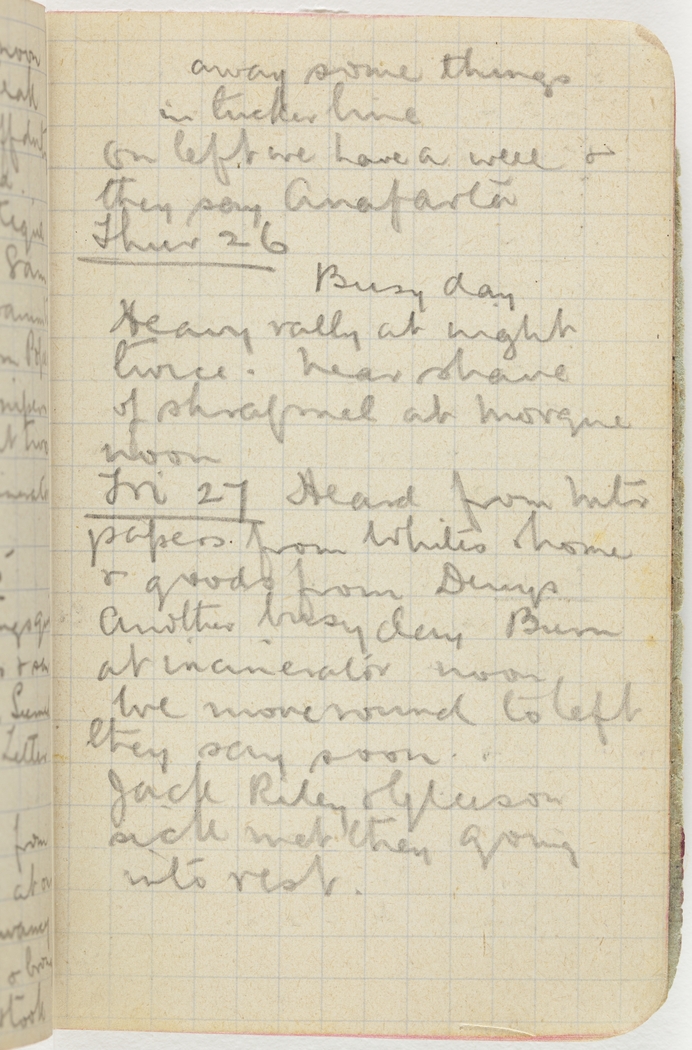 away some things
in tucker line
on left we have a well &
they say Anafarta
Thur 26
Busy day
Heavy rally at night
twice. near shave
of shrapnel at morgue
noon
Fri 27 Heard from
papers from Whites home
& goods from Denys
another busy day Burn
at incinerator noon
We move round to left
they say soon.
Jack Riley & Gleeson
sick met they going
into rest.